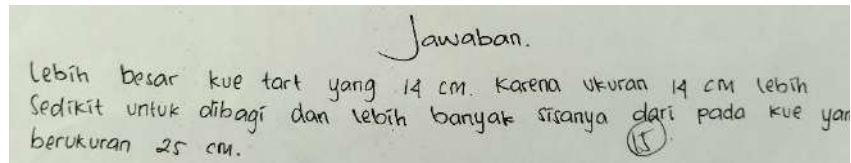 Jawaban.
lebih besar kue tart yang 14 cm. Karena ukuran 14 cm lebih
Sedikit untuk dibagi dan lebih banyak sisanya dari pada kue yan
berukuran 25 cm.
15